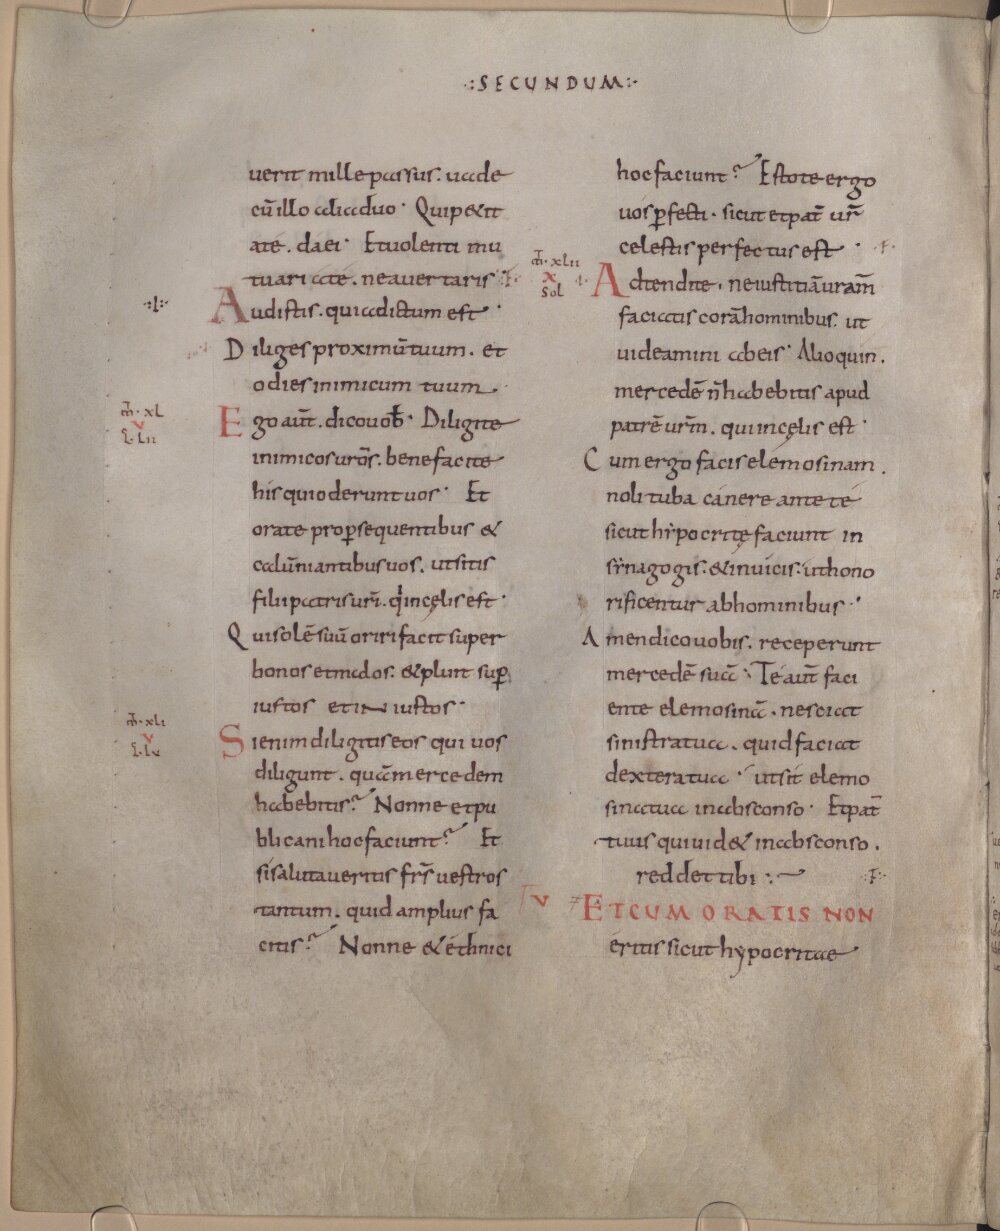 ·:SECUNDUM:·
uerit mille passus. uade
cū illo alia duo· Qui petit
a te. da ei· Et uolenti mu
tuari a te. ne auertaris·
·:l:·
Audistis. quia dictum est·
Diliges proximū tuum. et
odies inimicum tuum.
m̄·xl
v
l·lii
Ego aut̄. dico uob̄· Diligite
inimicos ur̄os. benefacite
his qui oderunt uos· Et
orate pro ꝑsequentibus &
calūniantibus uos. ut sitis
filii patris ur̄i. q̄ in cęlis est·
Qui solē suū oriri facit super
bonos et malos. & pluit suꝑ
iustos et in iustos·
m̄·xli
v
l·lv
Si enim diligitis eos qui uos
diligunt. quā mercedem
habebitis? Nonne et pu
blicani hoc faciunt? Et
si salutaueritis fr̄s uestros
tantum. quid amplius fa
citis? Nonne & ethnici
hoc faciunt? Estote ergo
uos ꝑfecti. sicut et pat̄ ur̄
celestis perfectus est·
m̄·xlii
x
sol
Adtendite. ne iustitiā uram̄
faciatis corā hominibus. ut
uideamini ab eis· Alioquin.
mercedē n̄ habebitis apud
patrē urm̄. qui in cęlis est·
Cum ergo facis elemosinam.
noli tuba canere ante te
sicut hypocritę faciunt in
synagogis. & in uicis. ut hono
rificentur ab hominibus·
Amen dico uobis. receperunt
mercedē suā· Te aut̄ faci
ente elemosinā. nesciat
sinistra tua. quid faciat
dextera tua· ut sit elemo
sina tua in absconso· Et pat̄
tuus qui uid& in absconso.
reddet tibi:·
v
ET CUM ORATIS NON
eritis sicut hypocritae